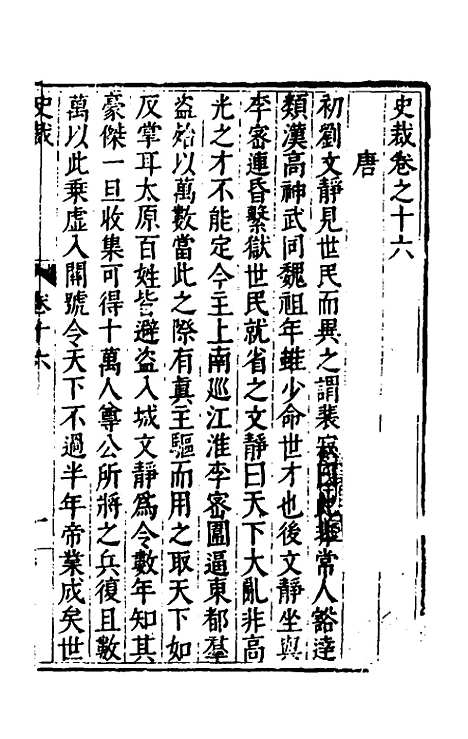 史裁卷之十六
唐
初劉文靜見世民而異之謂裴寂曰此非常人豁達
類漢高神武同魏祖年雖少命世才也後文靜坐與
李密連昏繫獄世民就省之文靜曰天下大亂非高
光之才不能定今主上南巡江淮李密圍逼東都羣
盜殆以萬數當此之際有真主驅而用之取天下如
反掌耳太原百姓皆避盜入城文靜為令數年知其
豪傑一旦收集可得十萬人尊公所將之兵復且數
萬以此乘虛入關號令天下不過半年帝業成矣世
史裁
卷十六
一